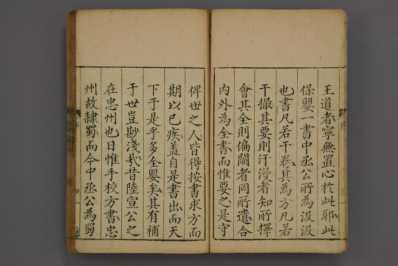 王道者寧無置心於此耶此
保嬰一書中丞公所為汲汲
也書凡若干卷其為方凡若
干撮其要則汗漫者知所擇
會其全則偏闕者罔所遺合
內外為全書而惟要之是守
俾世之人皆得按書求方而
期以已疾蓋自是書出而天
下于是乎多全嬰矣其有補
于世豈尠淺哉昔陸宣公之
在忠州也日惟手校方書忠
州故隷蜀而今中丞公為蜀